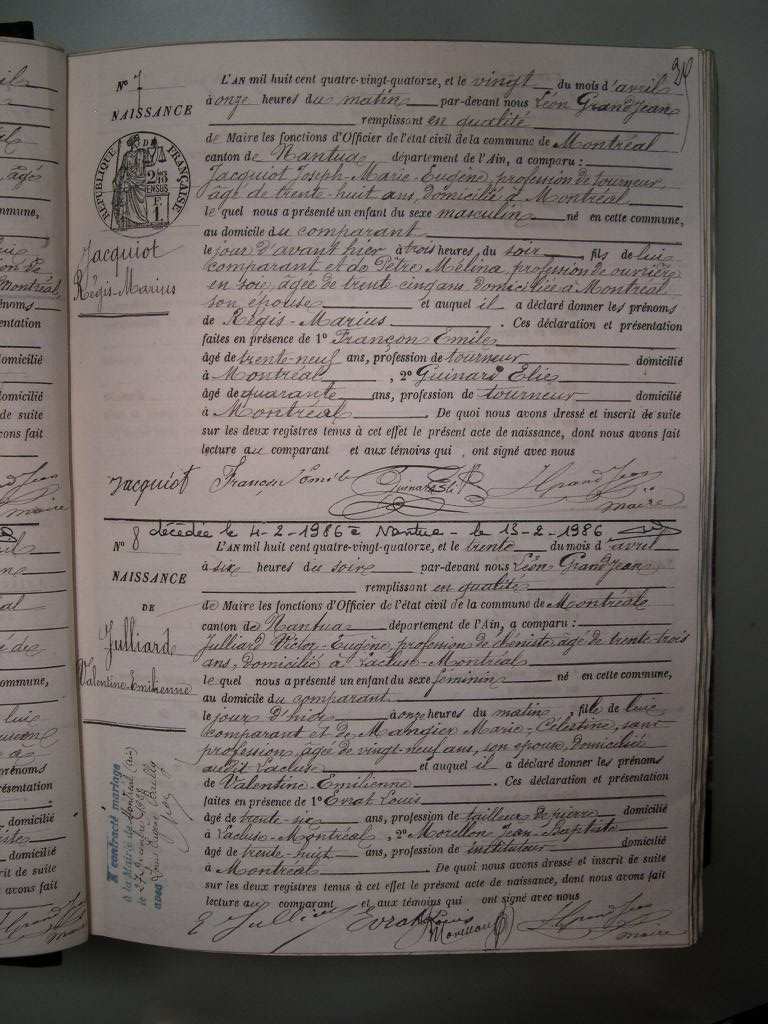 Nº 7
NAISSANCE
RÉPUBLIQUE FRANÇAISE
Jacquiot
Régis-Marius
L'AN mil huit cent quatre-vingt-quatorze, et le vingt du mois d'avril
à onze heures du matin par-devant nous Léon Grandjean
remplissant en qualité
de Maire les fonctions d'Officier de l'état civil de la commune de Montréal
canton de Nantua département de l'Ain, a comparu :
Jacquiot Joseph-Marie-Eugène, profession de tourneur,
âgé de trente-huit ans, domicilié à Montréal
le quel nous a présenté un enfant du sexe masculin né en cette commune,
au domicile du comparant
le jour d'avant hier à trois heures, du soir, fils de lui
comparant et de Pètre Mélina, profession de ouvrière
en soie, âgée de trente cinq ans, domiciliée à Montréal
son épouse et auquel il a déclaré donner les prénoms
de Régis-Marius. Ces déclaration et présentation
faites en présence de 1º Françon Emile
âgé de trente-neuf ans, profession de tourneur domicilié
à Montréal, 2º Guinard Elie
âgé de quarante ans, profession de tourneur domicilié
à Montréal. De quoi nous avons dressé et inscrit de suite
sur les deux registres tenus à cet effet le présent acte de naissance, dont nous avons fait
lecture au comparant et aux témoins qui, ont signé avec nous
Jacquiot Françon Emile Guinard Eli L Grandjean
maire
décédée le 4-2-1986 à Nantua - le 13-2-1986
Nº 8
NAISSANCE
DE
Julliard
Valentine-Emilienne
L'AN mil huit cent quatre-vingt-quatorze, et le trente du mois d'avril
à six heures du soir par-devant nous Léon Grandjean
remplissant en qualité
de Maire les fonctions d'Officier de l'état civil de la commune de Montréal
canton de Nantua département de l'Ain, a comparu :
Julliard Victor-Eugène, profession de ébéniste âgé de trente-trois
ans, domicilié à Lacluse-Montréal
le quel nous a présenté un enfant du sexe féminin né en cette commune,
au domicile du comparant
le jour d'hier à onze heures du matin, fille de lui
comparant et de Mangier Marie-Célestine, sans
profession, âgée de vingt-neuf ans, son épouse, domiciliée
audit Lacluse et auquel il a déclaré donner les prénoms
de Valentine-Emilienne. Ces déclaration et présentation
faites en présence de 1º Evrat Louis
âgé de trente-six ans, profession de tailleur de pierre domicilié
à Lacluse-Montréal, 2º Morellon Jean-Baptiste
âgé de trente-huit ans, profession de instituteur domicilié
à Montréal. De quoi nous avons dressé et inscrit de suite
sur les deux registres tenus à cet effet le présent acte de naissance, dont nous avons fait
lecture au comparant et aux témoins qui ont signé avec nous
E Julliard Evrat Louis Morellon L Grandjean
maire
A contracté mariage
à la Mairie de Montréal (Ain)
le 27
avec Louis